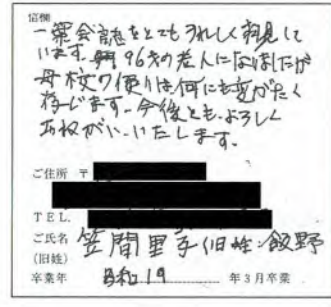 信欄
一葉会誌をとてもうれしく拝見して
います。96才の老人になりましたが
母校の便りは何にも変がたく
存じます。今後ともよろしく
おねがいいたします。
ご住所 〒
TEL.
ご氏名 笠間里子(旧姓・飯野
(旧姓)
卒業年 昭和19 年3月卒業